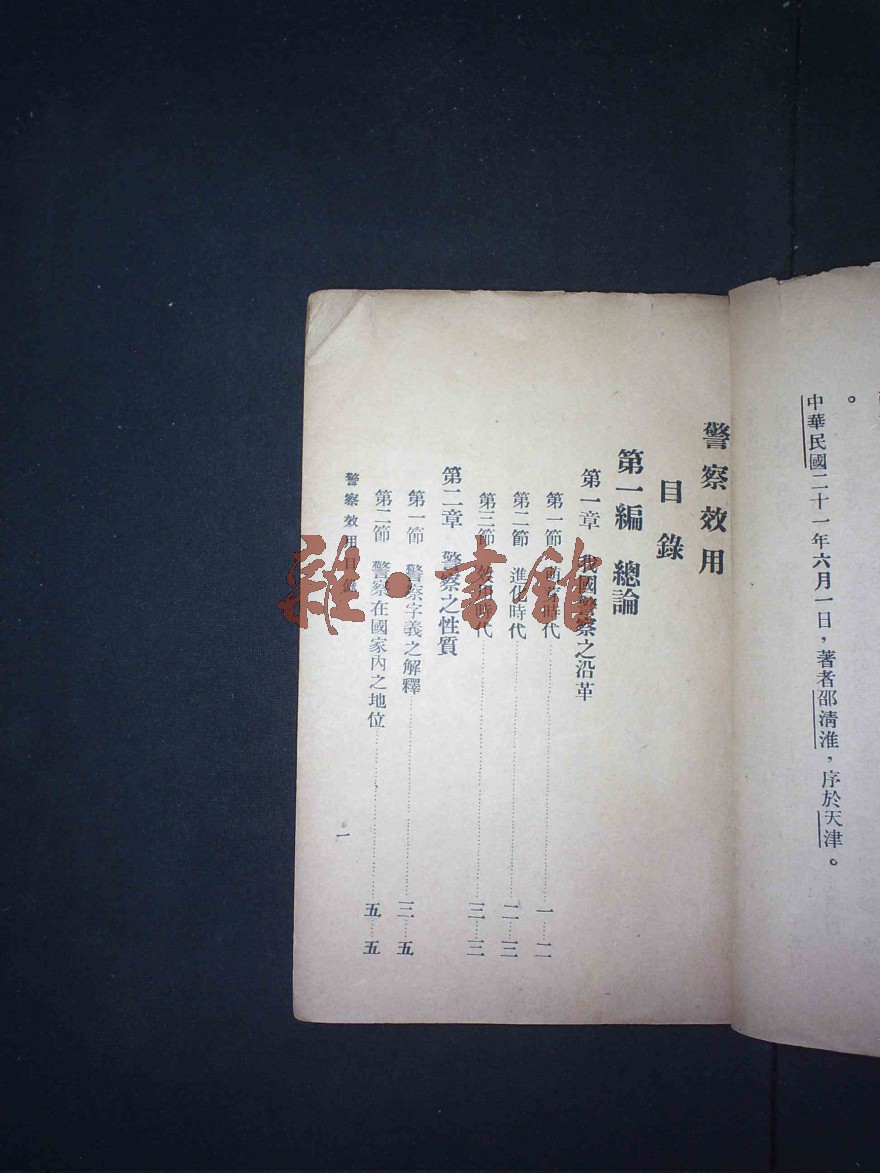 。
中華民國二十一年六月一日，著者邵清淮，序於天津。
警察效用
目錄
第一編　總論
第一章　我國警察之沿革
第一節　時代……一……二
第二節　進化時代……二……三
第三節　效用時代……三……三
第二章　警察之性質
第一節　警察字義之解釋……三……五
第二節　警察在國家內之地位……五……五
警察效用目錄
一
雜·書館